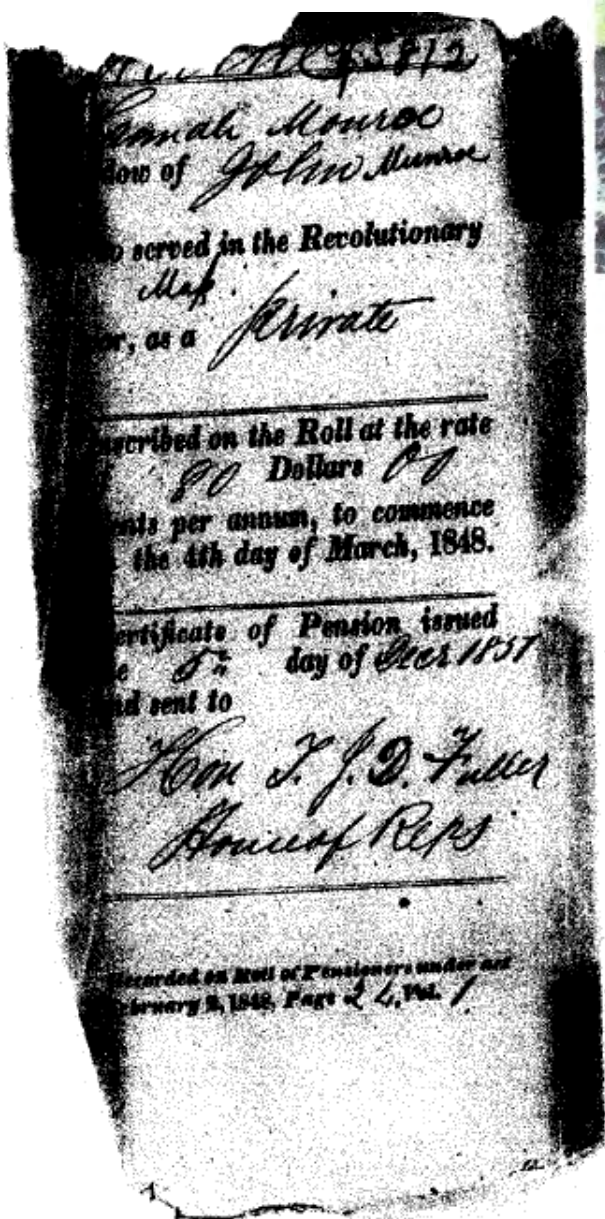 5812
Monroe
dow of John Munroe
o served in the Revolutionary
or, as a Private
scribed on the Roll at the rate
80 Dollars 00
ents per annum, to commence
the 4th day of March, 1848.
ertificate of Pension issued
e 5th day of Decr 1851
nd sent to
Hon T. J. D. Fuller
House of Reps
Recorded on Roll of Pensioners under act
bruary 2, 1848, Page Vol. 1